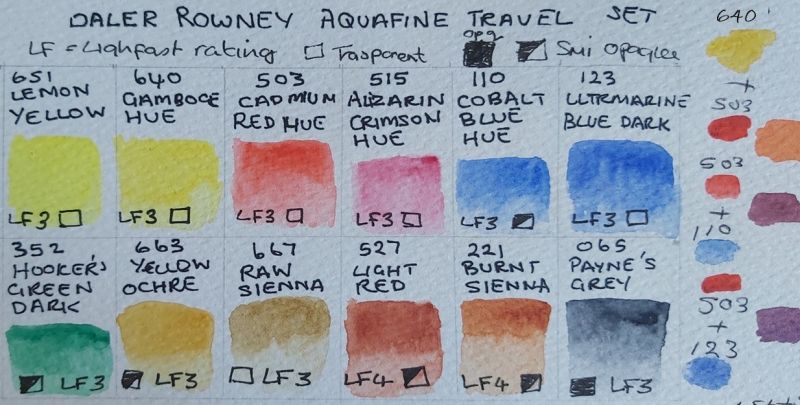 DALER ROWNEY AQUAFINE TRAVEL SET
LF = Lighfast rating Trasparent opq Smi opaque
651
LEMON
YELLOW
LF3
640
GAMBOGE
HUE
LF3
503
CADMIUM
RED HUE
LF3
515
ALIZARIN
CRIMSON
HUE
LF3
110
COBALT
BLUE
HUE
LF3
123
ULTRMARINE
BLUE DARK
LF3
352
HOOKER'S
GREEN
DARK
LF3
663
YELLOW
OCHRE
LF3
667
RAW
SIENNA
LF3
527
LIGHT
RED
LF4
221
BURNT
SIENNA
LF4
065
PAYNE'S
GREY
LF3
640
+
503
503
+
110
503
+
123